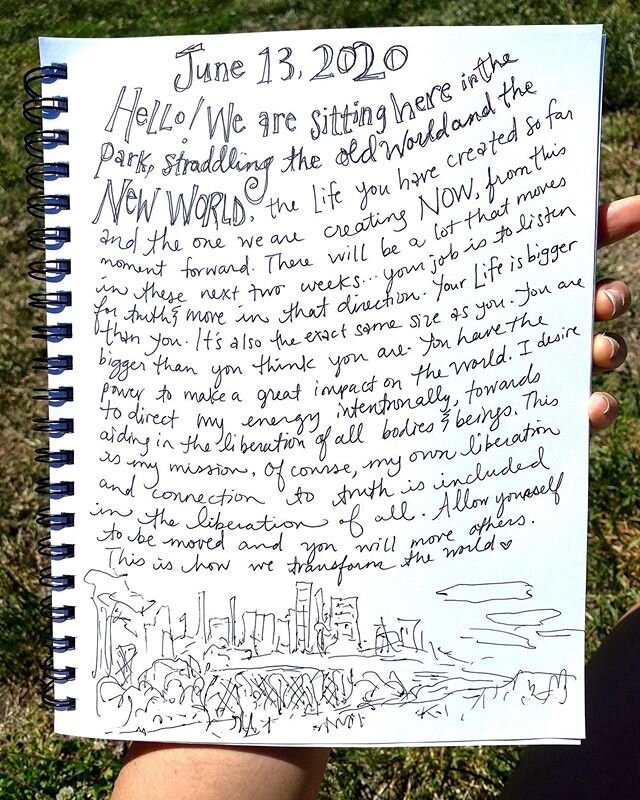 June 13, 2020
Hello! We are sitting here in the
Park, straddling the old World and the
NEW WORLD, the Life you have created so far
and the one we are creating NOW, from this
moment forward. There will be a lot that moves
in these next two weeks... your job is to listen
for truth & move in that direction. Your Life is bigger
than you. It's also the exact same size as you. You are
bigger than you think you are. You have the
power to make a great impact on the world. I desire
to direct my energy intentionally, towards
aiding in the liberation of all bodies & beings. This
is my mission. Of course, my own liberation
and connection to truth is included
in the liberation of all. Allow yourself
to be moved and you will move others.
This is how we transform the world ♡